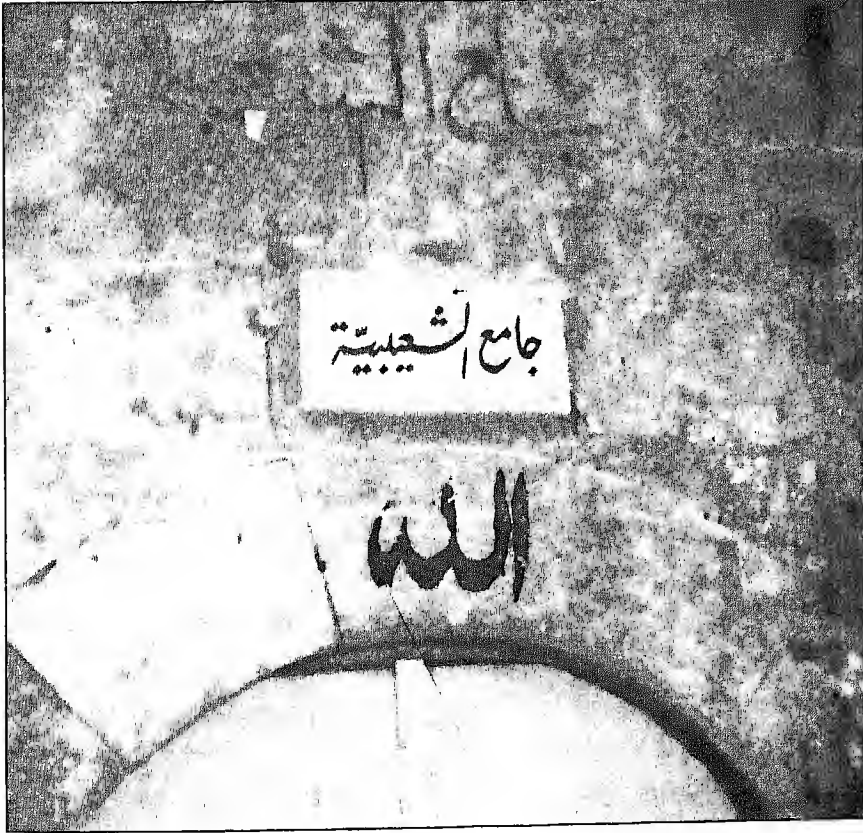 جامع الشعيبيّة
الله